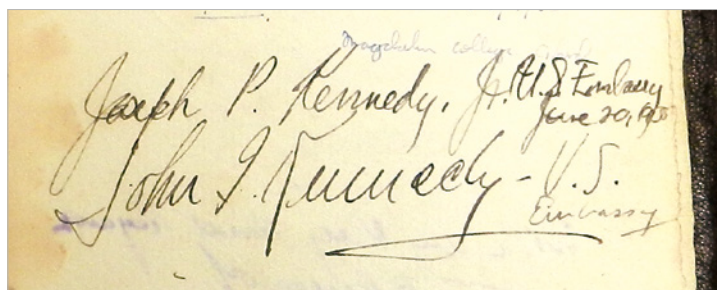 Magdalen College
Joseph P. Kennedy, Jr. U.S. Embassy
June 20,
John F. Kennedy - U.S.
Embassy